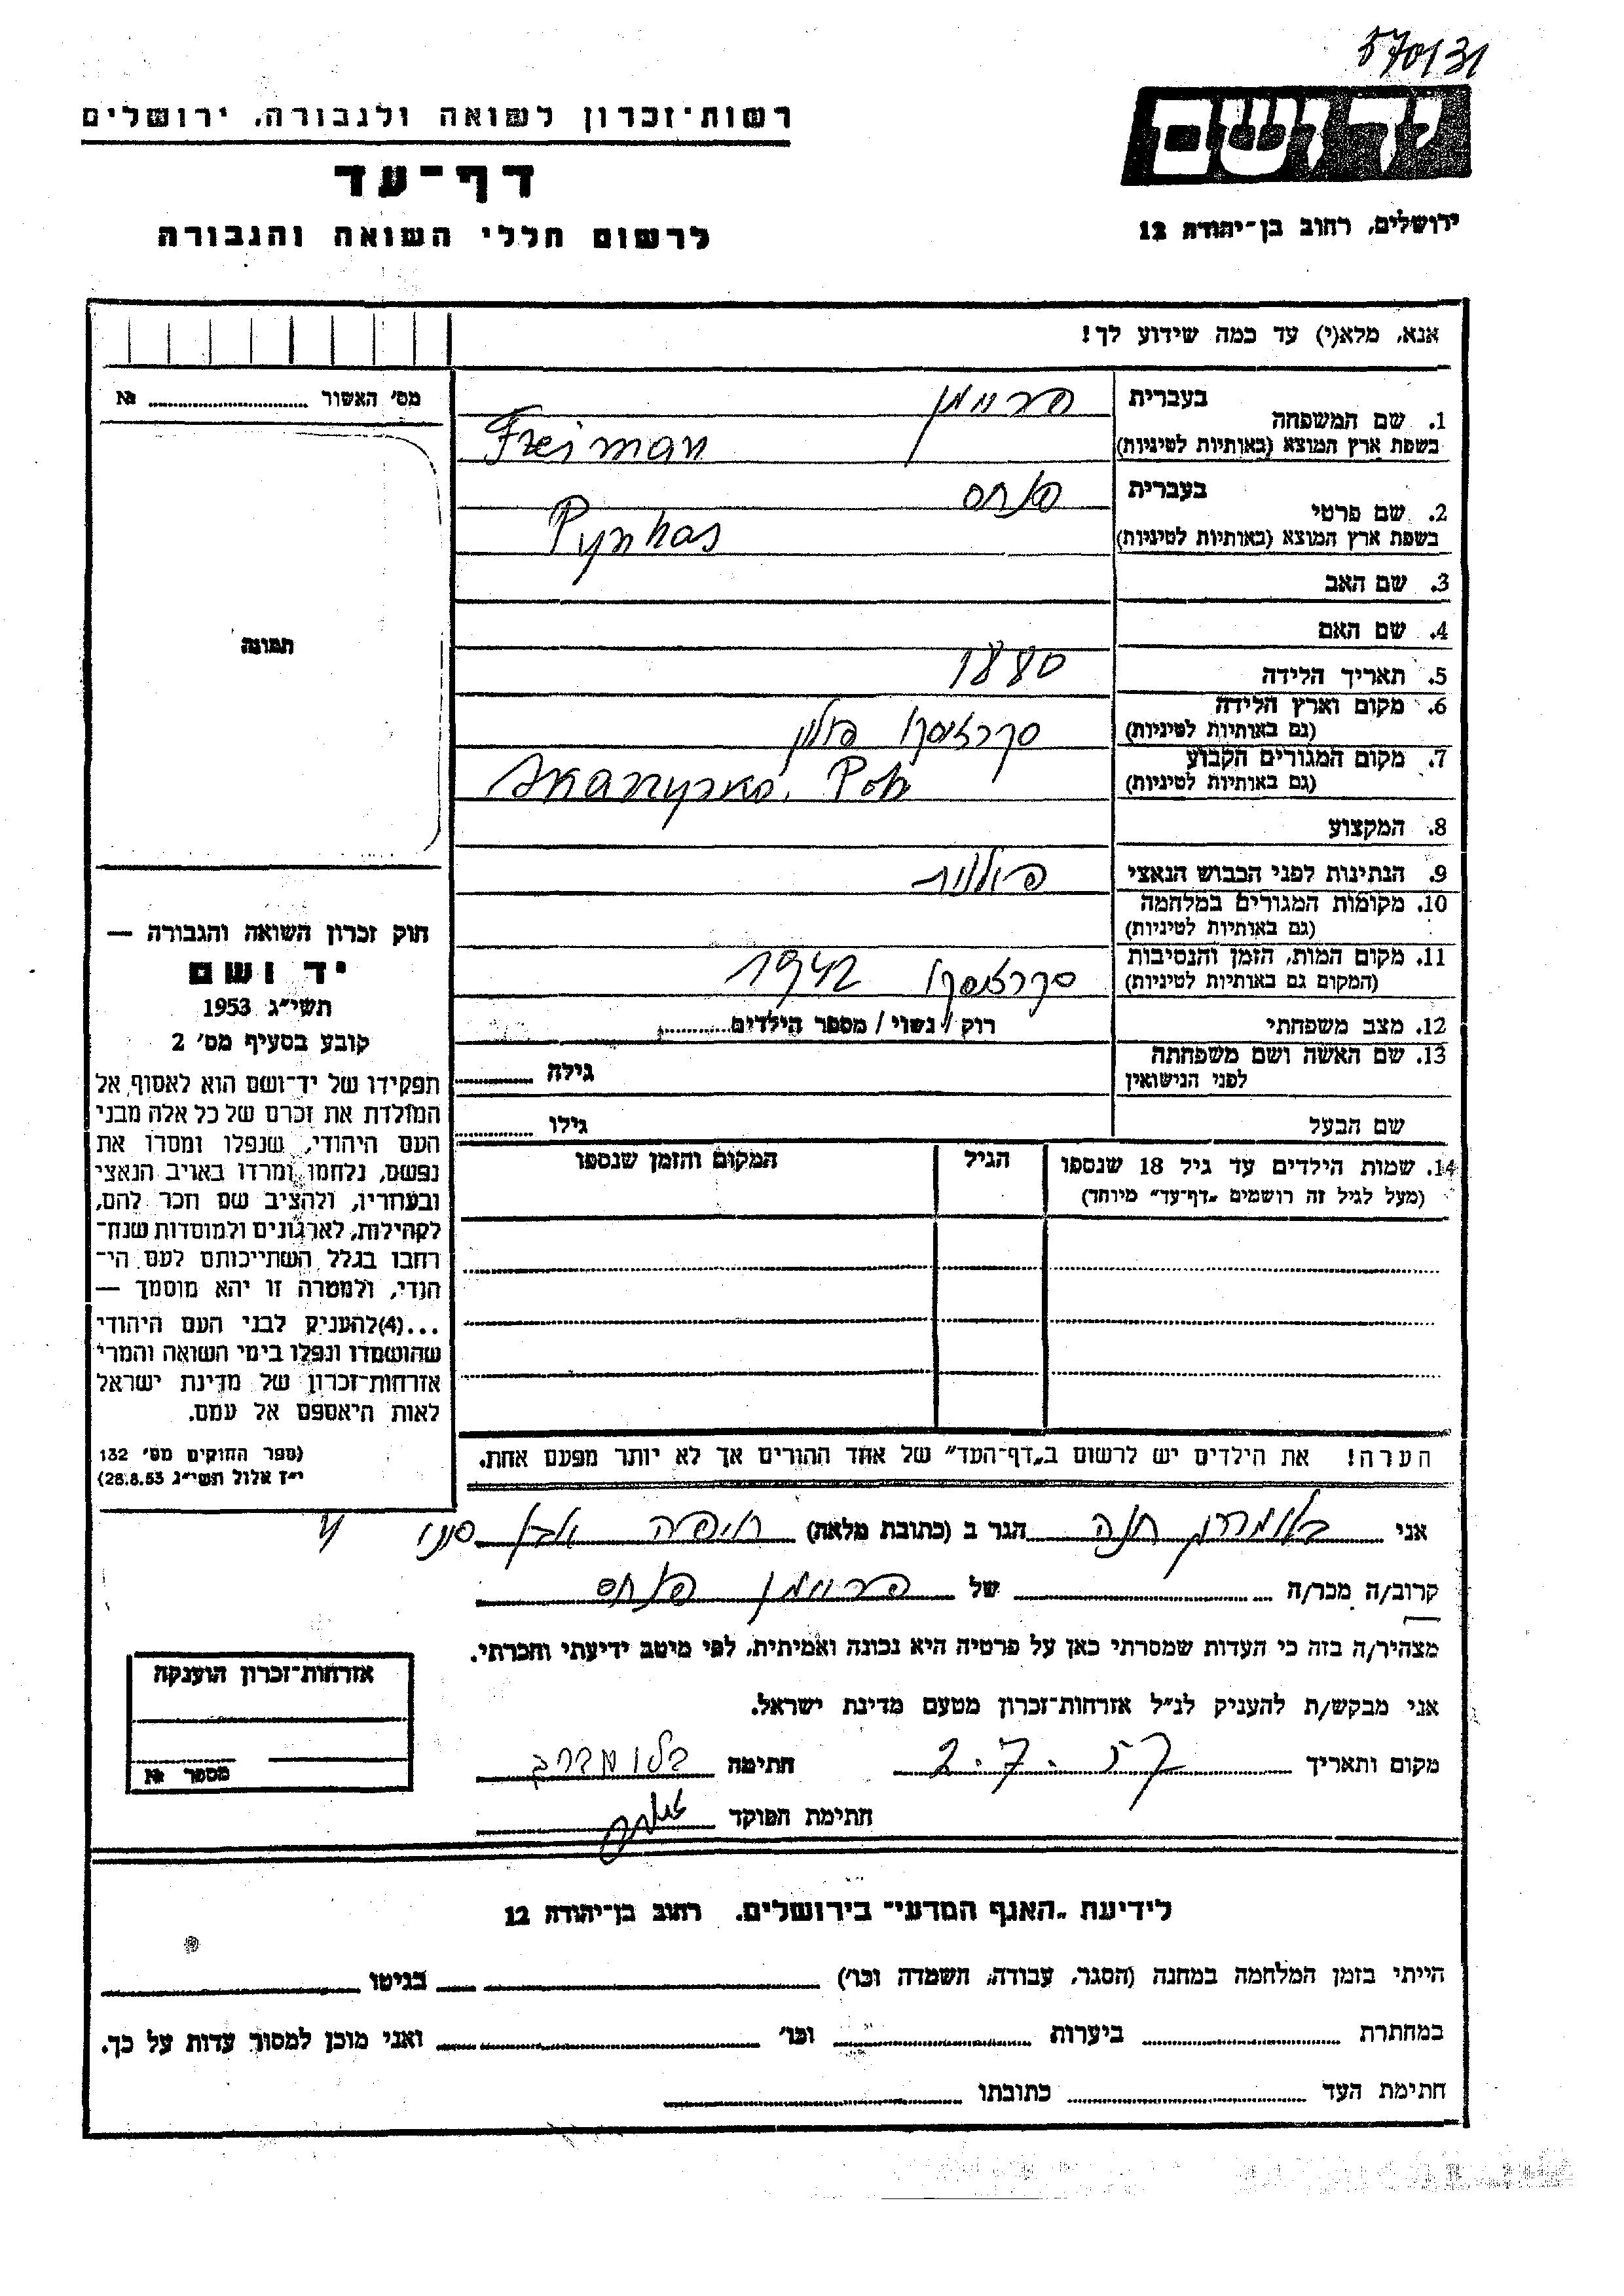 570131
יד ושם
ירושלים, רחוב בן-יהודה 12
רשות-זכרון לשואה ולגבורה, ירושלים
דף-עד
לרשום חללי השואה והגבורה
אנא, מלא(י) עד כמה שידוע לך!
מס' האשור № ........
תמונה
1. שם המשפחה
בעברית פריימן
בשפת ארץ המוצא (באותיות לטיניות) Freiman
2. שם פרטי
בעברית פנחס
בשפת ארץ המוצא (באותיות לטיניות) Pynhas
3. שם האב
4. שם האם
5. תאריך הלידה 1880
6. מקום וארץ הלידה
(גם באותיות לטיניות) פולין
7. מקום המגורים הקבוע
(גם באותיות לטיניות)
8. המקצוע
9. הנתינות לפני הכבוש הנאצי פולנית
10. מקומות המגורים במלחמה
(גם באותיות לטיניות)
11. מקום המות, הזמן והנסיבות
(המקום גם באותיות לטיניות) 1942
12. מצב משפחתי רוק / נשוי / מספר הילדים ........
13. שם האשה ושם משפחתה
לפני הנישואין גילה ........
שם הבעל גילו ........
14. שמות הילדים עד גיל 18 שנספו
(מעל לגיל זה רושמים „דף-עד" מיוחד)
הגיל
המקום והזמן שנספו
חוק זכרון השואה והגבורה —
יד ושם
תשי"ג 1953
קובע בסעיף מס' 2
תפקידו של יד-ושם הוא לאסוף אל
המולדת את זכרם של כל אלה מבני
העם היהודי, שנפלו ומסרו את
נפשם, נלחמו ומרדו באויב הנאצי
ובעוזריו, ולהציב שם וזכר להם,
לקהילות, לארגונים ולמוסדות שנח-
רבו בגלל השתייכותם לעם הי-
הודי, ולמטרה זו יהא מוסמך —
...(4)להעניק לבני העם היהודי
שהושמדו ונפלו בימי השואה והמרי
אזרחות-זכרון של מדינת ישראל
לאות היאספם אל עמם.
(ספר החוקים מס' 132
י"ז אלול תשי"ג 28.8.53)
הערה! את הילדים יש לרשום ב„דף-העד" של אחד ההורים אך לא יותר מפעם אחת.
אני חנה הגר ב (כתובת מלאה) חיפה
קרוב/ה מכר/ה של פריימן פנחס
מצהיר/ה בזה כי העדות שמסרתי כאן על פרטיה היא נכונה ואמיתית, לפי מיטב ידיעתי והכרתי.
אני מבקש/ת להעניק לנ"ל אזרחות-זכרון מטעם מדינת ישראל.
מקום ותאריך 2.7.57 חתימה
חתימת הפוקד
אזרחות-זכרון הוענקה
מספר №
לידיעת „האגף המדעי" בירושלים. רחוב בן-יהודה 12
הייתי בזמן המלחמה במחנה (הסגר, עבודה, השמדה וכו') בגיטו
במחתרת ביערות וכו' ואני מוכן למסור עדות על כך.
חתימת העד כתובתו